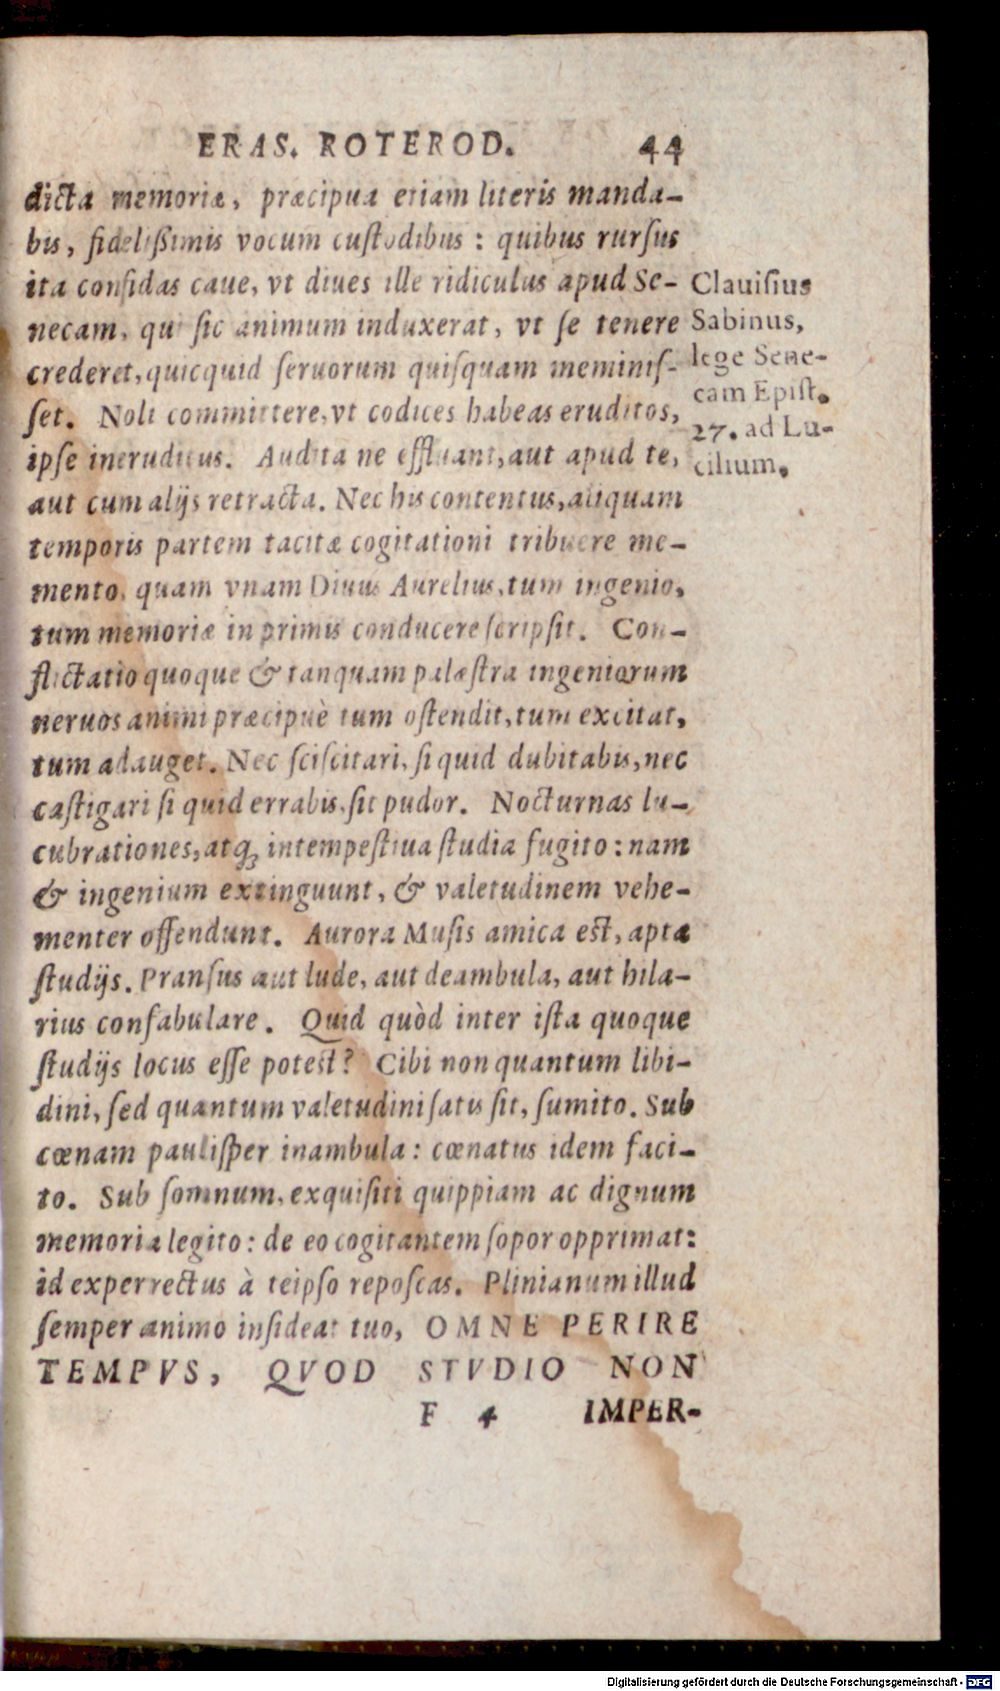 ERAS. ROTEROD. 44
dicta memoriæ, præcipua etiam literis manda-
bis, fidelißimis vocum custodibus : quibus rursus
ita confidas caue, vt diues ille ridiculus apud Se-
necam, qui sic animum induxerat, vt se tenere
crederet, quicquid seruorum quisquam meminis-
set. Noli committere, vt codices habeas eruditos,
ipse ineruditus. Audita ne effluant, aut apud te,
aut cum alijs retracta. Nec his contentus, aliquam
temporis partem tacitæ cogitationi tribuere me-
mento, quam vnam Diuus Aurelius, tum ingenio,
tum memoriæ in primis conducere scripsit. Con-
flictatio quoque & tanquam palæstra ingeniorum
neruos animi præcipuè tum ostendit, tum excitat,
tum adauget. Nec sciscitari, si quid dubitabis, nec
castigari si quid errabis, sit pudor. Nocturnas lu-
cubrationes, atq; intempestiua studia fugito : nam
& ingenium extinguunt, & valetudinem vehe-
menter offendunt. Aurora Musis amica est, apta
studijs. Pransus aut lude, aut deambula, aut hila-
rius confabulare. Quid quòd inter ista quoque
studijs locus esse potest? Cibi non quantum libi-
dini, sed quantum valetudini satis sit, sumito. Sub
cœnam paulisper inambula : cœnatus idem faci-
to. Sub somnum, exquisiti quippiam ac dignum
memoria legito : de eo cogitantem sopor opprimat:
id experrectus à teipso reposcas. Plinianum illud
semper animo insideat tuo, OMNE PERIRE
TEMPVS, QVOD STVDIO NON
F 4 IMPER-
Clauisius
Sabinus,
lege Sene-
cam Epist.
27. ad Lu-
cilium.
Digitalisierung gefördert durch die Deutsche Forschungsgemeinschaft - DFG